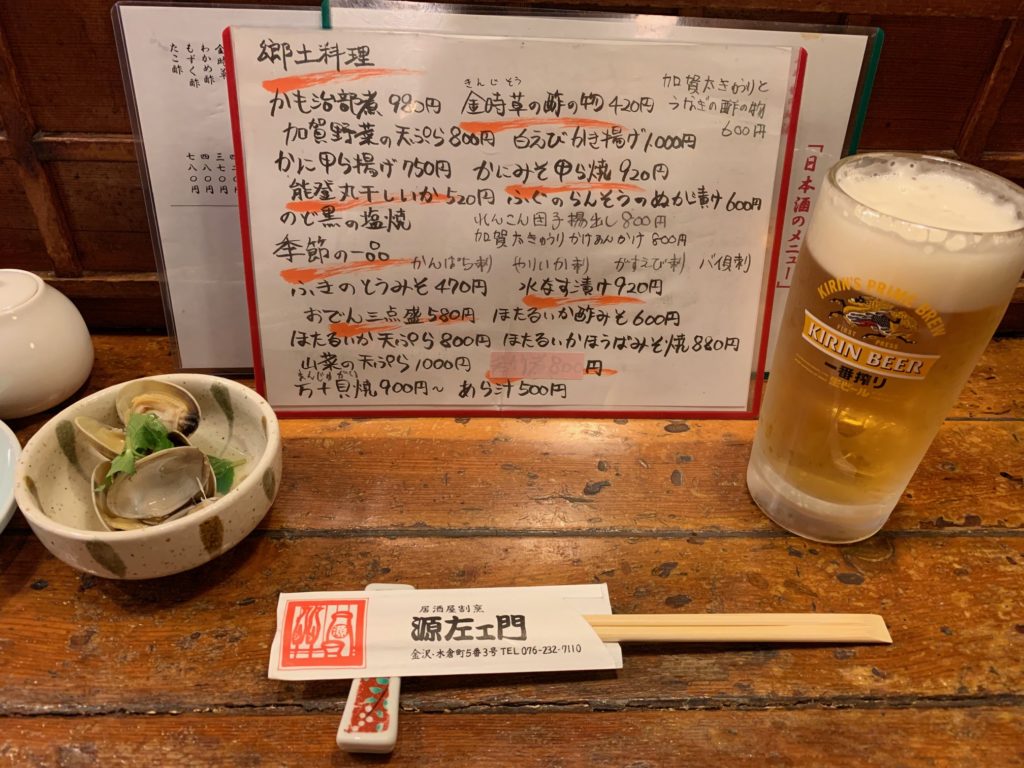 わかめ酢
もずく酢
たこ酢
三七〇円
四八〇円
七八〇円
郷土料理
かも治部煮 980円
きんじそう
金時草の酢の物 420円
加賀太きゅうりと
うなぎの酢の物
600円
加賀野菜の天ぷら 800円
白えびかき揚げ 1.000円
かに甲ら揚げ 750円
かにみそ甲ら焼 920円
能登丸干しいか 520円
ふぐのらんそうのぬかじ漬け 600円
のど黒の塩焼
れんこん団子揚出し 800円
加賀太きゅうりかけあんかけ 800円
季節の一品
かんぱち刺 やりいか刺 がすえび刺 バイ貝刺
ふきのとうみそ 470円
水なす漬け 920円
おでん三点盛 580円
ほたるいか酢みそ 600円
ほたるいか天ぷら 800円
ほたるいかほうばみそ焼 880円
山菜の天ぷら 1000円
800円
万十貝焼 900円～
あら汁 500円
「日本酒のメニュー」
KIRIN'S PRIME BREW
KIRIN BEER
一番搾り
生ビール
居酒屋割烹
源左エ門
金沢・木倉町5番3号 TEL 076-232-7110